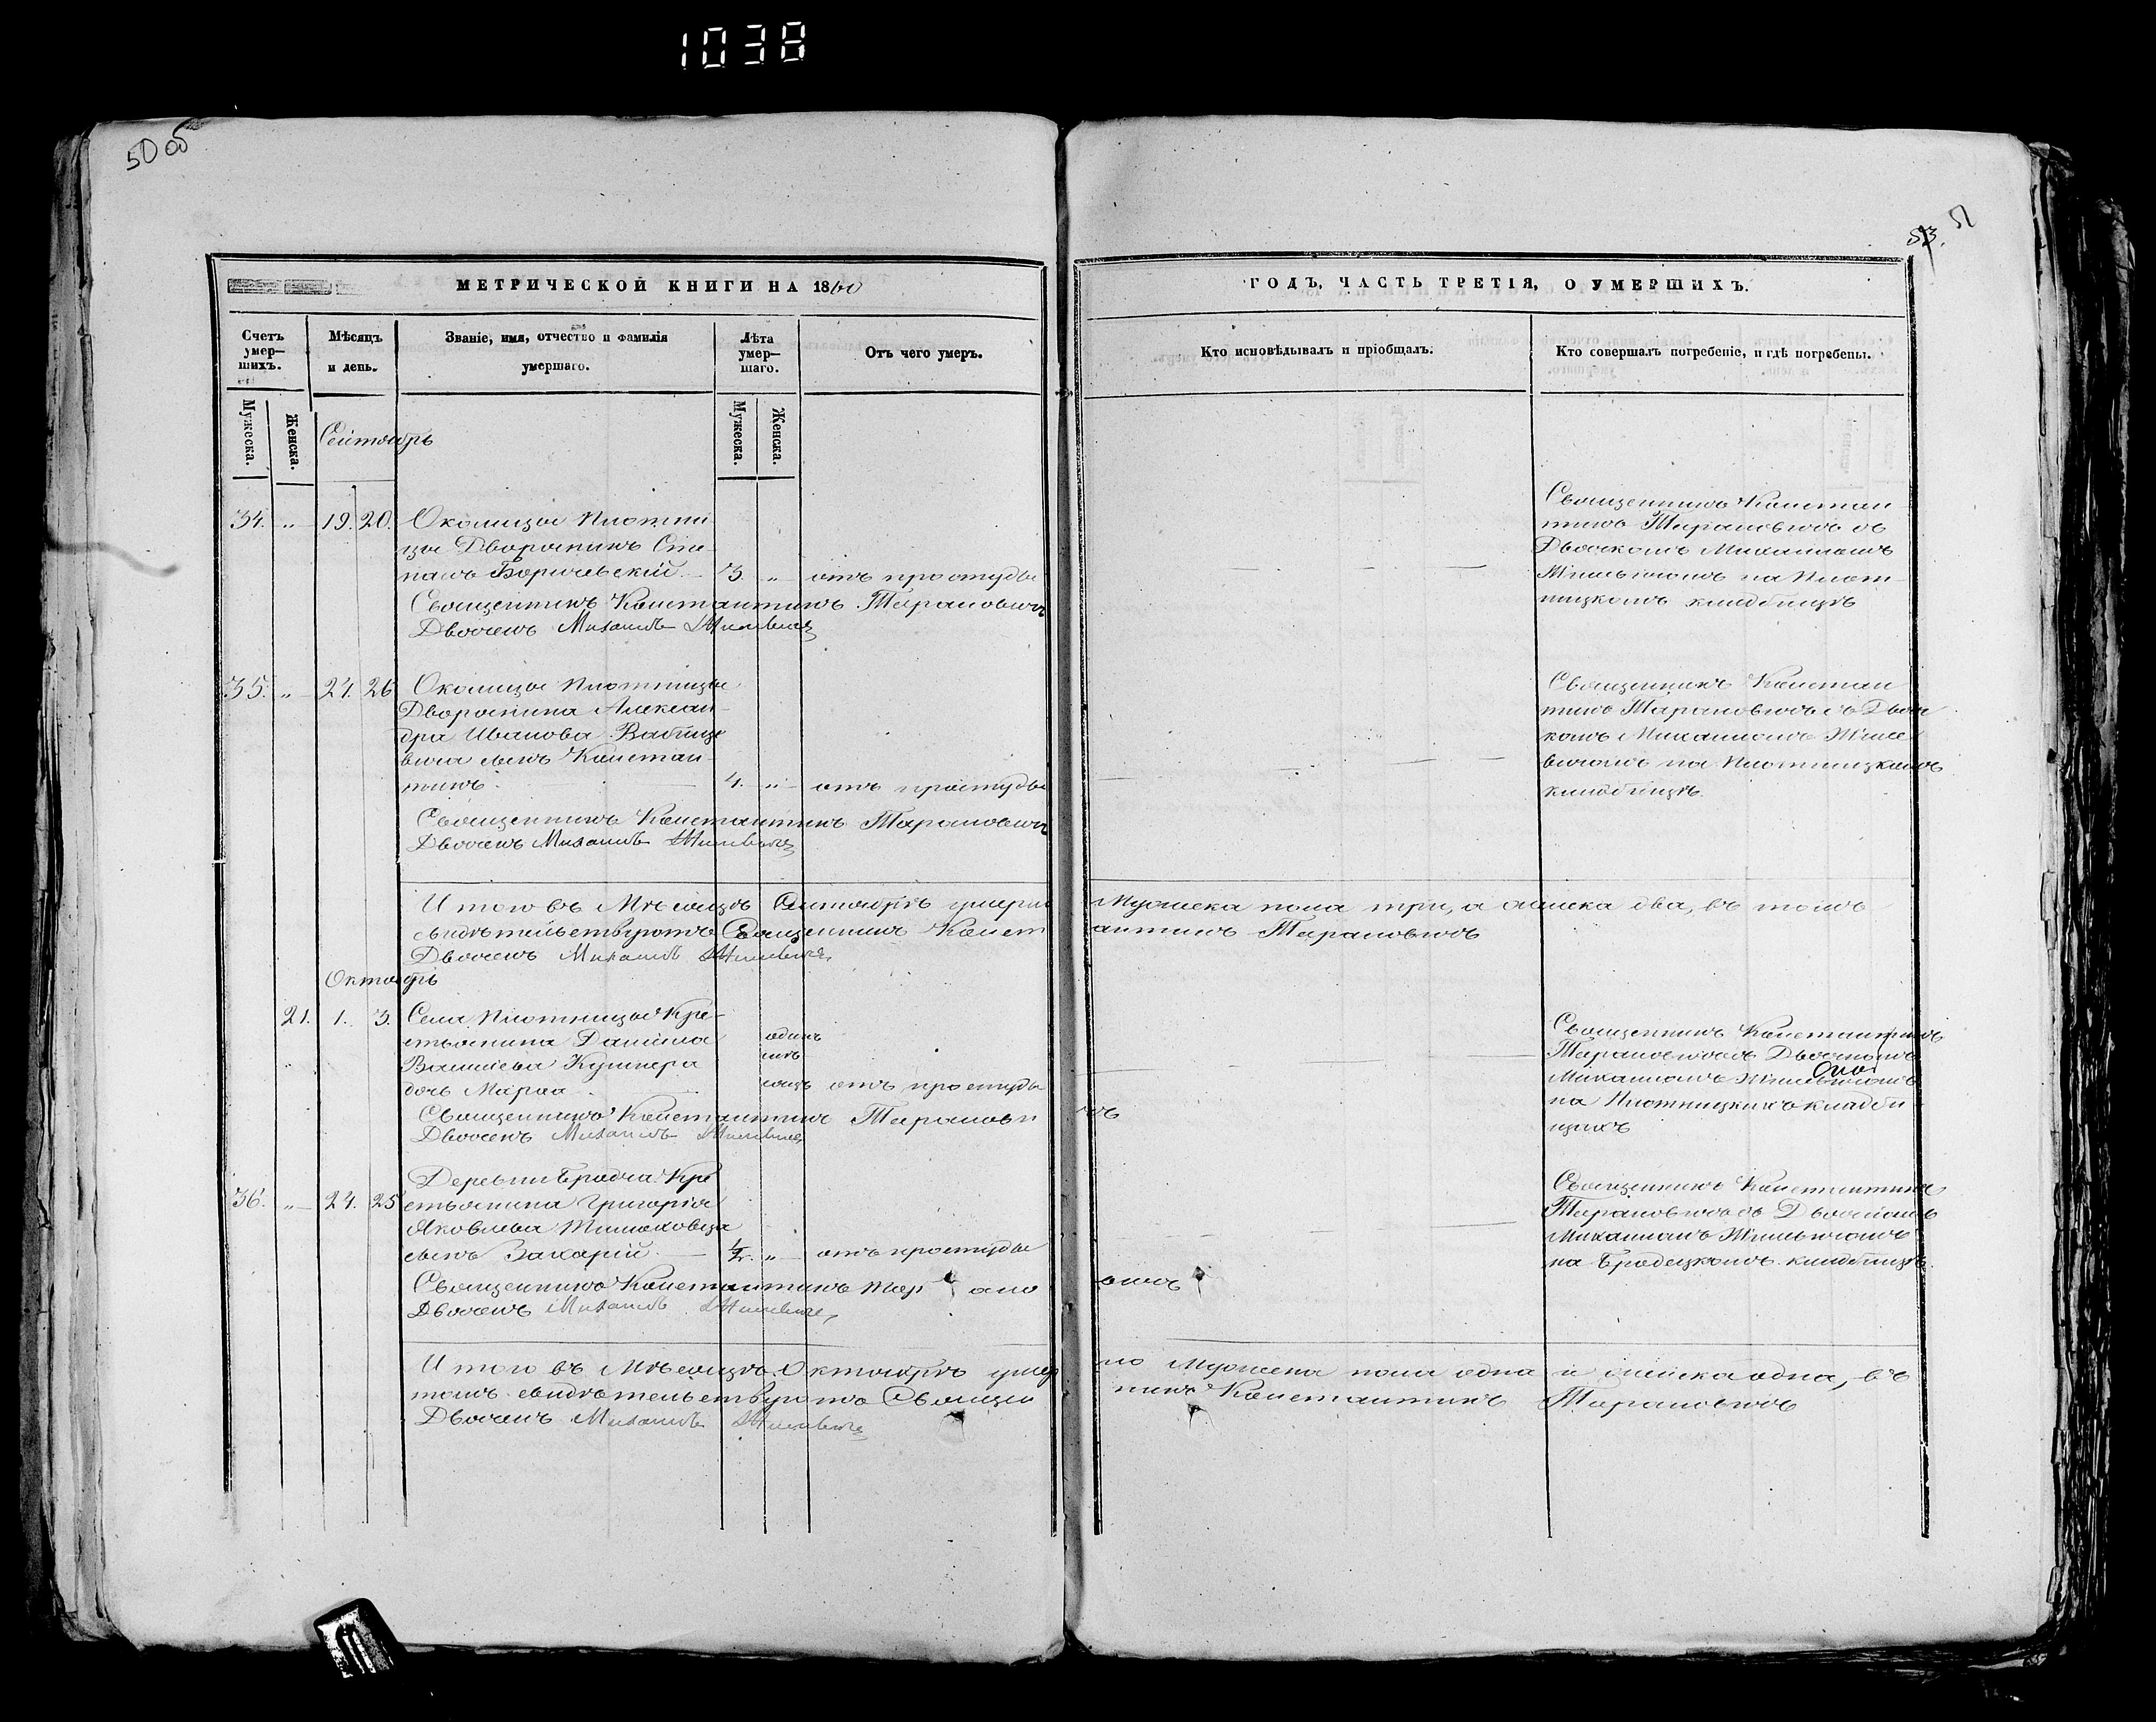 1038
50 об
53. 51
МЕТРИЧЕСКОЙ КНИГИ НА 1860
ГОДЪ, ЧАСТЬ ТРЕТІЯ, О УМЕРШИХЪ.
Счетъ умер—шихъ.
Мѣсяцъ и день.
Званіе, имя, отчество и фамилія умершаго.
Лѣта умер—шаго.
Отъ чего умеръ.
Кто исповѣдывалъ и пріобщалъ.
Кто совершалъ погребеніе, и гдѣ погребены.
Мужеска.
Женска.
Мужеска.
Женска.
Сентябрь
34. „ 19. 20. Околицы Плотни-
цы Дворянинъ Сте-
панъ Боричевскій. 3. „ отъ простуды
Священникъ Константинъ Тарановичъ
Дьячекъ Михаилъ Жилевичъ
Священникъ Констан-
тинъ Тарановичъ съ
Дьячкомъ Михаиломъ
Жилевичомъ на Плот-
ницкомъ кладбищѣ
35. „ 24. 26 Околицы Плотницы
Дворянина Алексан-
дра Иванова Вабище
вича сынъ Констан-
тинъ. 4. „ отъ простуды
Священникъ Константинъ Тарановичъ
Дьячекъ Михаилъ Жилевичъ
Священникъ Констан
тинъ Тарановичъ съ Дьяч
комъ Михаиломъ Жиле
вичомъ на Плотницкомъ
кладбищѣ.
Итого въ Мѣсяцѣ Сентябрѣ умерло Мужеска пола три, а женска два, въ томъ
свидѣтельствуютъ Священникъ Константинъ Тарановичъ
Дьячекъ Михаилъ Жилевичъ
Октябрь
21. 1. 3. Села Плотницы Кре-
стьянина Даніила
Василіева Кушнера
дочь Марѳа одинъ мѣсяцъ отъ простуды
Священникъ Константинъ Тарановичъ
Дьячекъ Михаилъ Жилевичъ
Священникъ Константинъ
Тарановичъ съ Дьячкомъ
Михаиломъ Жилевичомъ
на Плотницкихъ кладби
щахъ
36. „ 24. 25 Деревни Бродча Кре
стьянина Григорія
Яковлева
сынъ Захарій. 1/2. „ отъ простуды
Священникъ Константинъ Тарановичъ
Дьячекъ Михаилъ Жилевичъ
Священникъ Константинъ
Тарановичъ съ Дьячкомъ
Михаиломъ Жилевичомъ
на Бродецкомъ кладбищѣ.
Итого въ Мѣсяцѣ Октябрѣ умерло Мужеска пола одна и женска одна, въ
томъ свидѣтельствуютъ Священникъ Константинъ Тарановичъ
Дьячекъ Михаилъ Жилевичъ